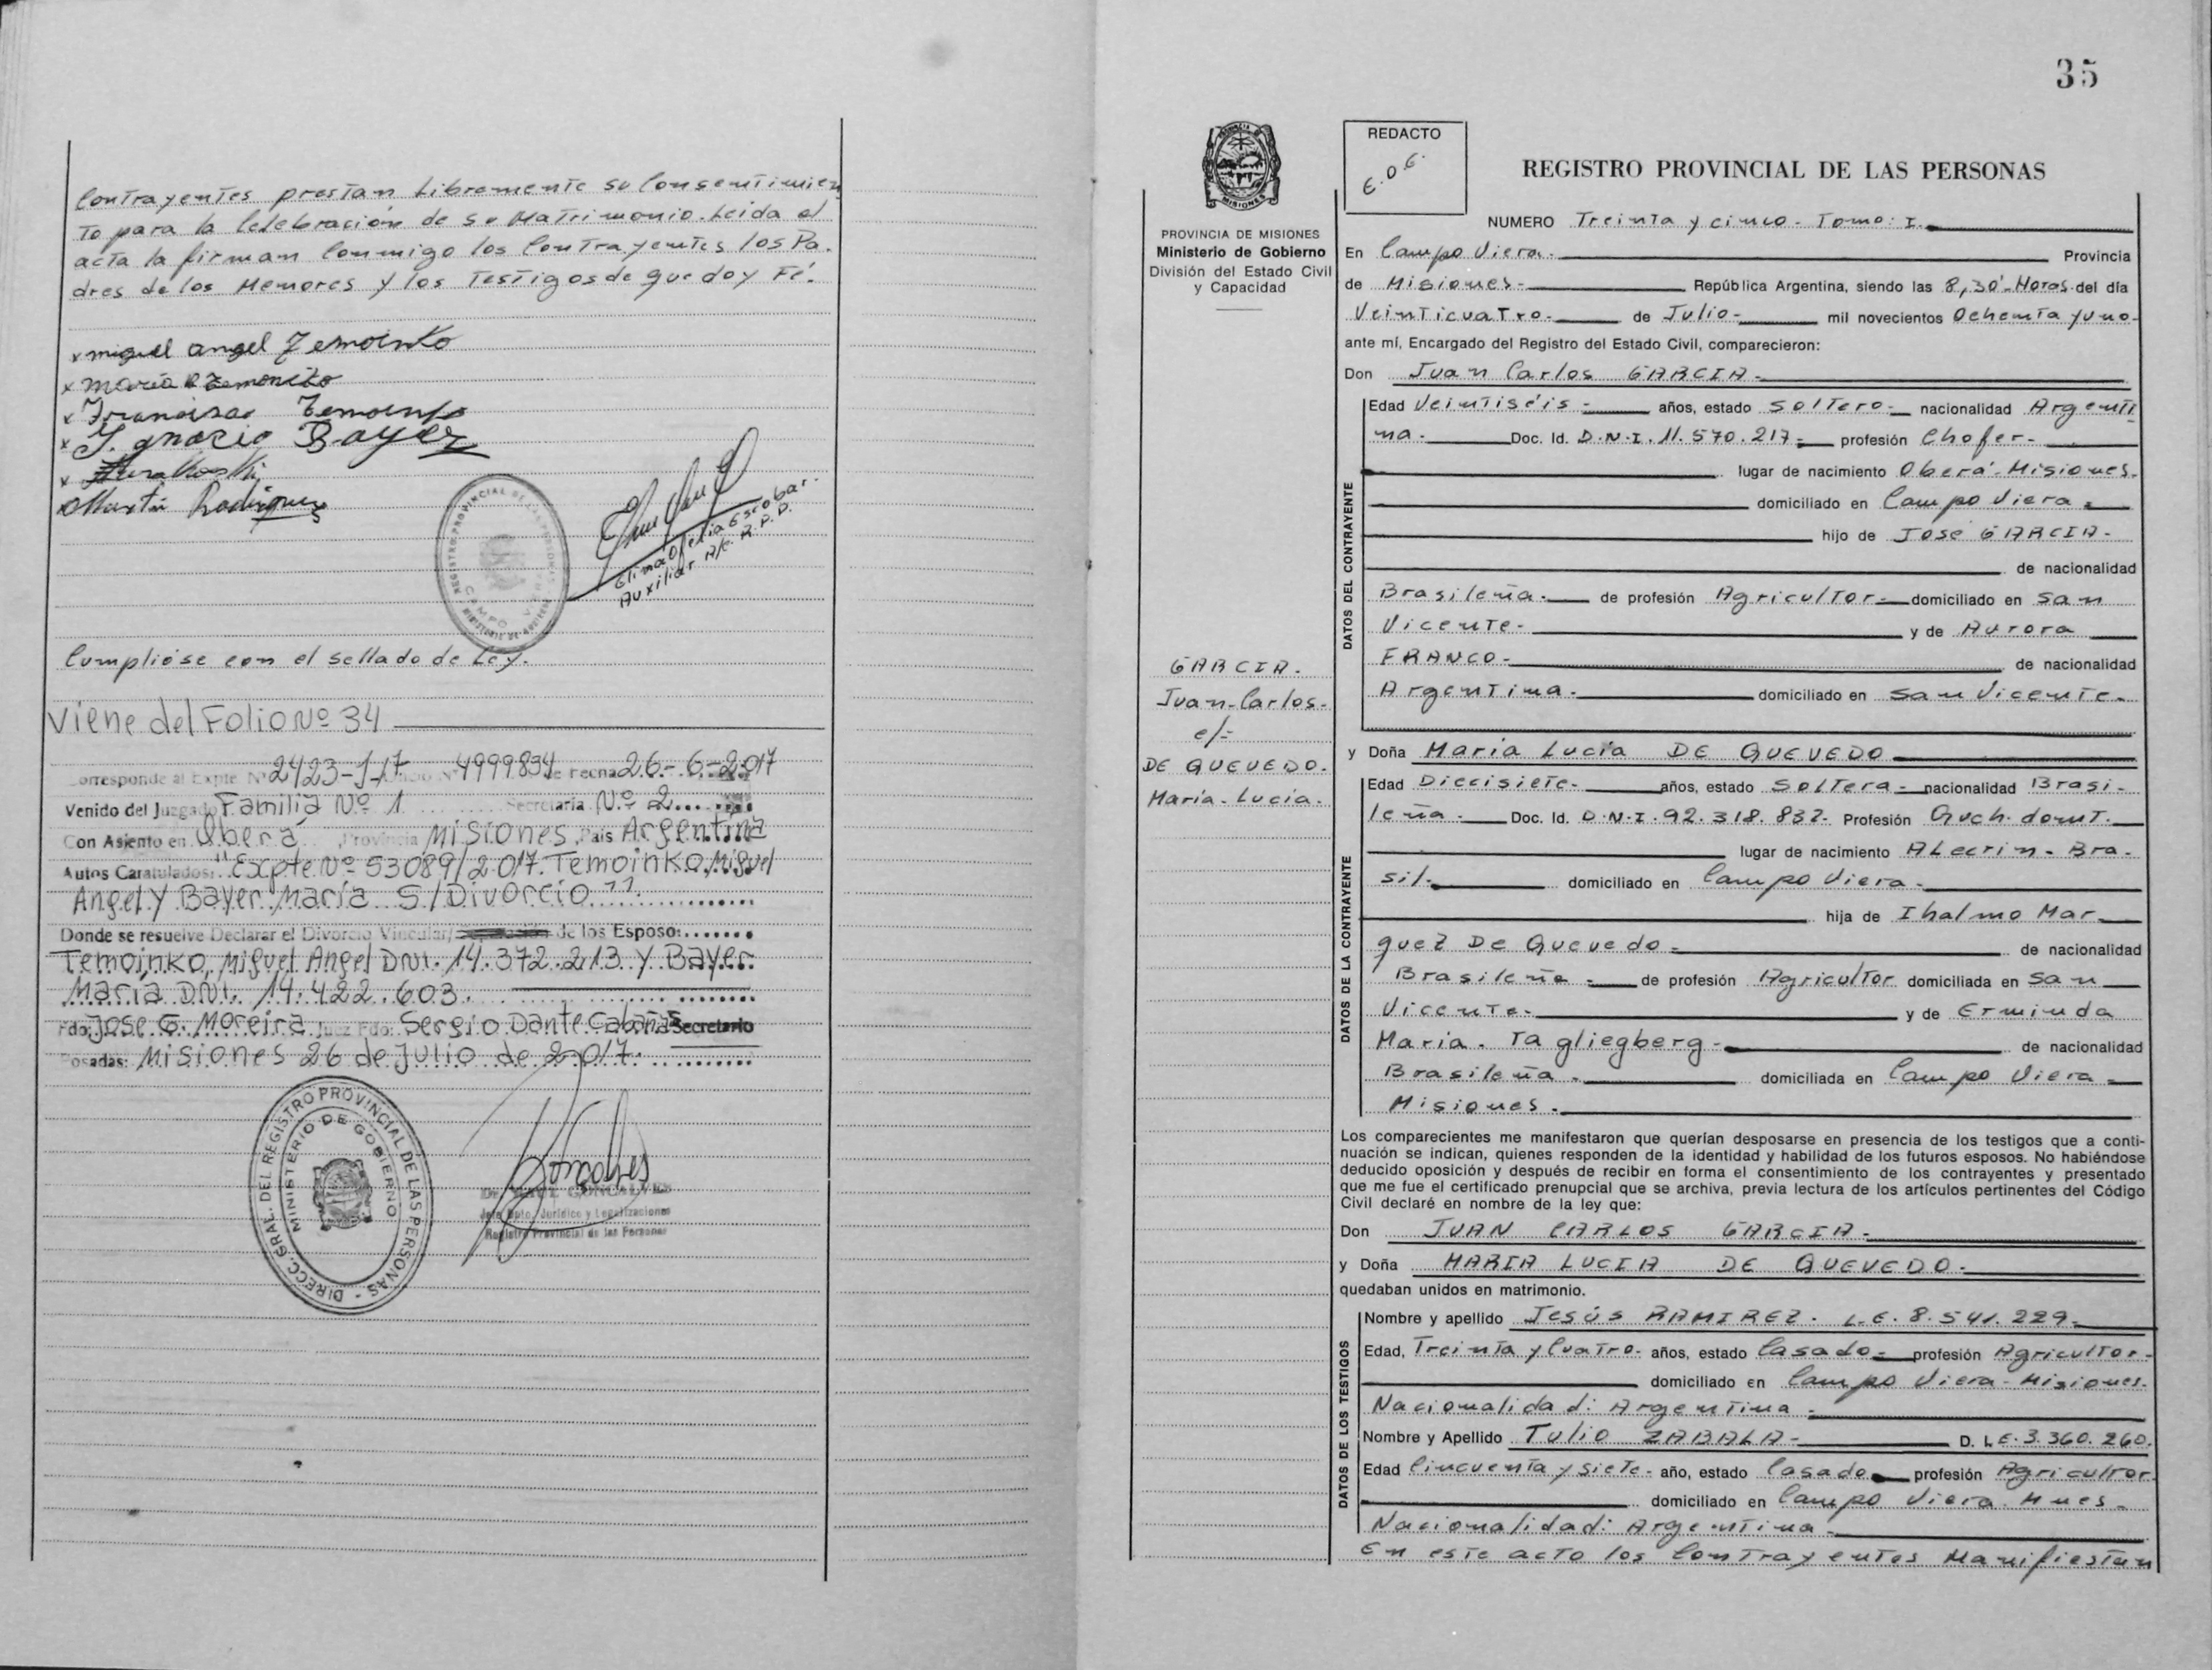 Contrayentes prestan Libremente su Consentimien
to para la Celebración de su Matrimonio. Leida el
acta la firman Conmigo los Contrayentes los Pa.
dres de los Menores y los Testigos de que doy Fé.
x miguel angel Temoinko
x maria
x Francisco Temoinko
x Ignacio Bayer
x
Martin Rodriguez
Elina Ofelia Escobar.
Auxiliar A/c. R.P.P.
Cumplióse con el sellado de Ley.
Viene del Folio Nº 34
Corresponde al Expte Nº 2423-J-17 Oficio Nº 4999834 de Fecha 26-6-2017
Venido del Juzgado Familia Nº 1 Secretaria Nº 2
Con Asiento en Oberá Provincia Misiones País Argentina
Autos Caratulados: "Expte Nº 53089/2017. Temoinko, Miguel
Angel Y Bayer María S/Divorcio"
Donde se resuelve Declarar el Divorcio Vincular/ de los Esposo:
Temoinko, Miguel Angel DNI. 14.372.213 y Bayer
María DNI. 14.422.603.
Fdo. Jose G. Moreira Juez Fdo: Sergio Dante Cabañas Secretario
Posadas: Misiones 26 de Julio de 2017.
DIRECC. GRAL. DEL REGISTRO PROVINCIAL DE LAS PERSONAS -
MINISTERIO DE GOBIERNO
GONCALVES
Jefe Dpto. Jurídico y Legalizaciones
Registro Provincial de las Personas
35
REDACTO
E.O.E.
REGISTRO PROVINCIAL DE LAS PERSONAS
PROVINCIA DE MISIONES
Ministerio de Gobierno
División del Estado Civil
y Capacidad
GARCIA.
Juan-Carlos-
c/-
DE QUEVEDO.
María-Lucía.
NUMERO Treinta y cinco - Tomo: I.
En Campo Viera.- Provincia
de Misiones- República Argentina, siendo las 8,30'-Horas-del día
Veinticuatro.- de Julio- mil novecientos Ochenta y uno-
ante mí, Encargado del Registro del Estado Civil, comparecieron:
Don Juan Carlos GARCIA-
DATOS DEL CONTRAYENTE
Edad Veintiséis- años, estado Soltero- nacionalidad Argenti
na.- Doc. Id. D.N.I. 11.570.217- profesión Chofer-
lugar de nacimiento Oberá-Misiones.
domiciliado en Campo Viera-
hijo de José GARCIA-
de nacionalidad
Brasileña.- de profesión Agricultor- domiciliado en San
Vicente- y de Aurora
FRANCO- de nacionalidad
Argentina.- domiciliado en San Vicente-
y Doña María Lucía DE QUEVEDO
DATOS DE LA CONTRAYENTE
Edad Diecisiete- años, estado Soltera- nacionalidad Brasi-
leña.- Doc. Id. D.N.I. 92.318.832- Profesión Queh. domt.
lugar de nacimiento Alecrin- Bra-
sil- domiciliado en Campo Viera-
hija de Ihalmo Mar
quez De Quevedo- de nacionalidad
Brasileña- de profesión Agricultor domiciliada en San
Vicente- y de Erminda
Maria. Tagliegberg- de nacionalidad
Brasileña.- domiciliada en Campo Viera-
Misiones.-
Los comparecientes me manifestaron que querían desposarse en presencia de los testigos que a conti-
nuación se indican, quienes responden de la identidad y habilidad de los futuros esposos. No habiéndose
deducido oposición y después de recibir en forma el consentimiento de los contrayentes y presentado
que me fue el certificado prenupcial que se archiva, previa lectura de los artículos pertinentes del Código
Civil declaré en nombre de la ley que:
Don JUAN CARLOS GARCIA-
y Doña MARIA LUCIA DE QUEVEDO-
quedaban unidos en matrimonio.
DATOS DE LOS TESTIGOS
Nombre y apellido Jesús RAMIREZ. L.E. 8.541.229-
Edad, Treinta y Cuatro- años, estado Casado- profesión Agricultor-
domiciliado en Campo Viera-Misiones.
Nacionalidad: Argentina-
Nombre y Apellido Tulio ZABALA- D. L E. 3.360.260.
Edad Cincuenta y Siete- año, estado Casado profesión Agricultor
domiciliado en Campo Viera Mnes-
Nacionalidad: Argentina-
En este acto los Contrayentes Manifiestan